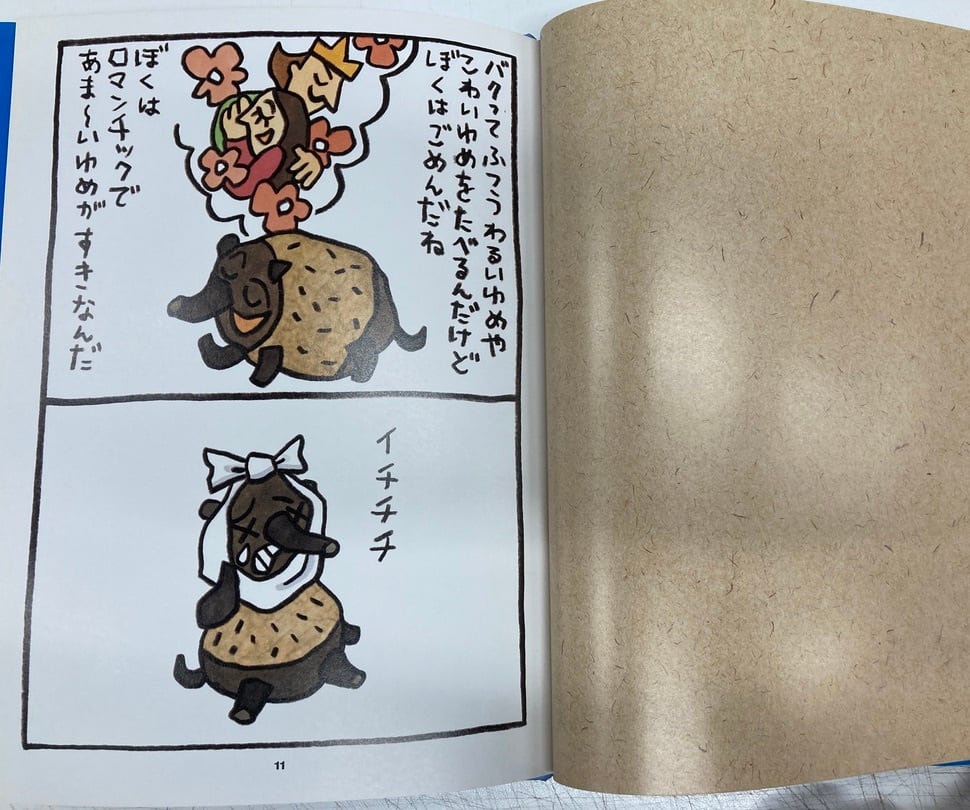 バクってふつうわるいゆめや
こわいゆめをたべるんだけど
ぼくはごめんだね
ぼくは
ロマンチックで
あま〜いゆめがすきなんだ
イチチチ
11